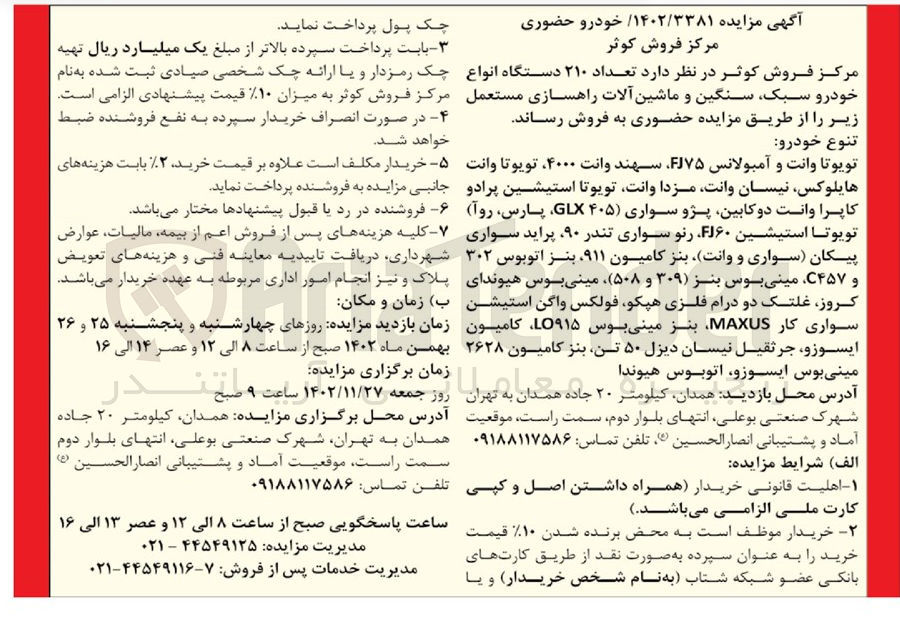 آگهی مزایده ۱۴۰۲/۳۳۸۱/ خودرو حضوری
مرکز فروش کوثر
مرکز فروش کوثر در نظر دارد تعداد ۲۱۰ دستگاه انواع
خودرو سبک، سنگین و ماشین‌آلات راهسازی مستعمل
زیر را از طریق مزایده حضوری به فروش رساند.
تنوع خودرو:
تویوتا وانت و آمبولانس FJ۷۵، سهند وانت ۴۰۰۰، تویوتا وانت
هایلوکس، نیسان وانت، مزدا وانت، تویوتا استیشین پرادو
کاپرا وانت دوکابین، پژو سواری (۴۰۵ GLX، پارس، روآ)
تویوتا استیشین FJ۶۰، رنو سواری تندر ۹۰، پراید سواری
پیکان (سواری و وانت)، بنز کامیون ۹۱۱، بنز اتوبوس ۳۰۲
و C۴۵۷، مینی‌بوس بنز (۳۰۹ و ۵۰۸)، مینی‌بوس هیوندای
کروز، غلتک دو درام فلزی هپکو، فولکس واگن استیشن
سواری کار MAXUS، بنز مینی‌بوس LO۹۱۵، کامیون
ایسوزو، جرثقیل نیسان دیزل ۵۰ تن، بنز کامیون ۲۶۲۸
مینی‌بوس ایسوزو، اتوبوس هیوندا
آدرس محل بازدید: همدان، کیلومتر ۲۰ جاده همدان به تهران
شهرک صنعتی بوعلی، انتهای بلوار دوم، سمت راست، موقعیت
آماد و پشتیبانی انصارالحسین (ع)، تلفن تماس: ۰۹۱۸۸۱۱۷۵۸۶
الف) شرایط مزایده:
۱-اهلیت قانونی خریدار (همراه داشتن اصل و کپی
کارت ملی الزامی می‌باشد.)
۲- خریدار موظف است به محض برنده شدن ۱۰٪ قیمت
خرید را به عنوان سپرده به‌صورت نقد از طریق کارت‌های
بانکی عضو شبکه شتاب (به‌نام شخص خریدار) و یا
چک پول پرداخت نماید.
۳-بابت پرداخت سپرده بالاتر از مبلغ یک میلیارد ریال تهیه
چک رمزدار و یا ارائه چک شخصی صیادی ثبت شده به‌نام
مرکز فروش کوثر به میزان ۱۰٪ قیمت پیشنهادی الزامی است.
۴- در صورت انصراف خریدار سپرده به نفع فروشنده ضبط
خواهد شد.
۵- خریدار مکلف است علاوه بر قیمت خرید، ۲٪ بابت هزینه‌های
جانبی مزایده به فروشنده پرداخت نماید.
۶- فروشنده در رد یا قبول پیشنهادها مختار می‌باشد.
۷-کلیه هزینه‌های پس از فروش اعم از بیمه، مالیات، عوارض
شهرداری، دریافت تاییدیه معاینه فنی و هزینه‌های تعویض
پلاک و نیز انجام امور اداری مربوطه به عهده خریدار می‌باشد.
ب) زمان و مکان:
زمان بازدید مزایده: روزهای چهارشنبه و پنجشنبه ۲۵ و ۲۶
بهمن ماه ۱۴۰۲ صبح از ساعت ۸ الی ۱۲ و عصر ۱۴ الی ۱۶
زمان برگزاری مزایده:
روز جمعه ۱۴۰۲/۱۱/۲۷ ساعت ۹ صبح
آدرس محل برگزاری مزایده: همدان، کیلومتر ۲۰ جاده
همدان به تهران، شهرک صنعتی بوعلی، انتهای بلوار دوم
سمت راست، موقعیت آماد و پشتیبانی انصارالحسین (ع)
تلفن تماس: ۰۹۱۸۸۱۱۷۵۸۶
ساعت پاسخگویی صبح از ساعت ۸ الی ۱۲ و عصر ۱۳ الی ۱۶
مدیریت مزایده: ۴۴۵۴۹۱۲۵ - ۰۲۱
مدیریت خدمات پس از فروش: ۷-۴۴۵۴۹۱۱۶-۰۲۱
AriaTender